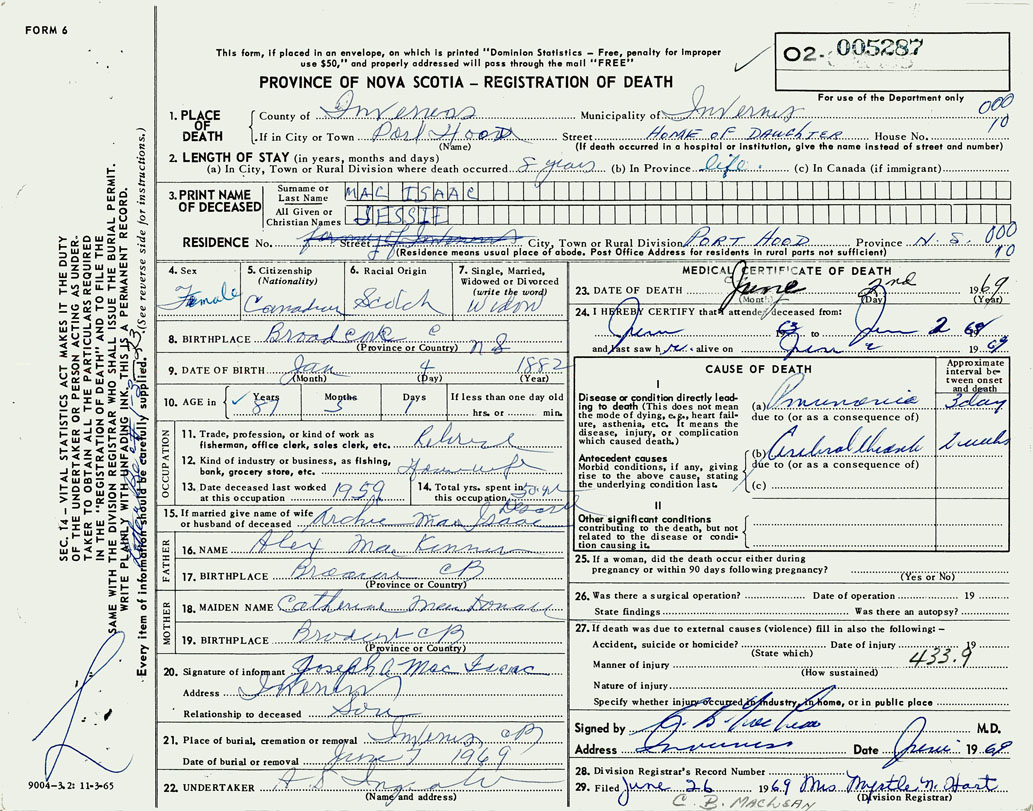 FORM 6
This form, if placed in an envelope, on which is printed "Dominion Statistics – Free, penalty for improper
use $50," and properly addressed will pass through the mail "FREE"
PROVINCE OF NOVA SCOTIA – REGISTRATION OF DEATH
02- 005287
For use of the Department only
000
10
1. PLACE OF DEATH
County of Inverness Municipality of Inverness
If in City or Town Port Hood Street HOME OF DAUGHTER House No.
(Name) (If death occurred in a hospital or institution, give the name instead of street and number)
2. LENGTH OF STAY (in years, months and days)
(a) In City, Town or Rural Division where death occurred 8 years (b) In Province life. (c) In Canada (if immigrant)
3. PRINT NAME OF DECEASED
Surname or Last Name MAC ISAAC
All Given or Christian Names JESSIE
RESIDENCE No. Street City, Town or Rural Division PORT HOOD Province N.S. 000
(Residence means usual place of abode. Post Office Address for residents in rural parts not sufficient) 10
4. Sex Female
5. Citizenship (Nationality) Canadian
6. Racial Origin Scotch
7. Single, Married, Widowed or Divorced (write the word) Widow
8. BIRTHPLACE Broad cove
(Province or Country) N S
9. DATE OF BIRTH Jan 4 1882
(Month) (Day) (Year)
10. AGE in Years Months Days If less than one day old
✓ 87 5 hrs. or min.
OCCUPATION
11. Trade, profession, or kind of work as fisherman, office clerk, soles clerk, etc. Retired
12. Kind of industry or business, as fishing, bank, grocery store, etc. Housewife
13. Date deceased last worked at this occupation 1959
14. Total yrs. spent in this occupation 50 yrs
15. If married give name of wife or husband of deceased Archie Mac Isaac
FATHER
16. NAME Alex Mac Kinnon
17. BIRTHPLACE CB
(Province or Country)
MOTHER
18. MAIDEN NAME Catherine MacDonald
19. BIRTHPLACE CB
(Province or Country)
20. Signature of informant Joseph A Mac Isaac
Address Inverness
Relationship to deceased Son
21. Place of burial, cremation or removal Inverness CB
Date of burial or removal June 1969
22. UNDERTAKER
(Name and address)
MEDICAL CERTIFICATE OF DEATH
23. DATE OF DEATH June 2nd 1969
(Month) (Day) (Year)
24. I HEREBY CERTIFY that I attended deceased from:
63 to June 2 69
and last saw her alive on June 2 1969
CAUSE OF DEATH
Approximate interval between onset and death
I
Disease or condition directly leading to death (This does not mean the mode of dying, e.g., heart failure, asthenia, etc. It means the disease, injury, or complication which caused death.)
(a) Pneumonia 3 day
due to (or as a consequence of)
Antecedent causes
Morbid conditions, if any, giving rise to the above cause, stating the underlying condition last.
(b) Cerebral 2 weeks
due to (or as a consequence of)
(c)
II
Other significant conditions contributing to the death, but not related to the disease or condition causing it.
25. If a woman, did the death occur either during pregnancy or within 90 days following pregnancy?
(Yes or No)
26. Was there a surgical operation? Date of operation 19
State findings Was there an autopsy?
27. If death was due to external causes (violence) fill in also the following: –
Accident, suicide or homicide? Date of injury 19
(State which) 433.9
Manner of injury
(How sustained)
Nature of injury
Specify whether injury occurred in industry, in home, or in public place
Signed by M.D.
Address Inverness Date June 1969
28. Division Registrar's Record Number
29. Filed June 26 1969 Mrs. Myrtle N. Hart
(Division Registrar)
C. B. MACLEAN
SEC. T4 – VITAL STATISTICS ACT MAKES IT THE DUTY
OF THE UNDERTAKER OR PERSON ACTING AS UNDER-
TAKER TO OBTAIN ALL THE PARTICULARS REQUIRED
IN THE "REGISTRATION OF DEATH" AND TO FILE THE
SAME WITH THE DIVISION REGISTRAR WHO SHALL ISSUE THE BURIAL PERMIT.
WRITE PLAINLY WITH UNFADING INK. THIS IS A PERMANENT RECORD.
Every item of information should be carefully supplied. (See reverse side for instructions.)
9004-3.2: 11-3-65